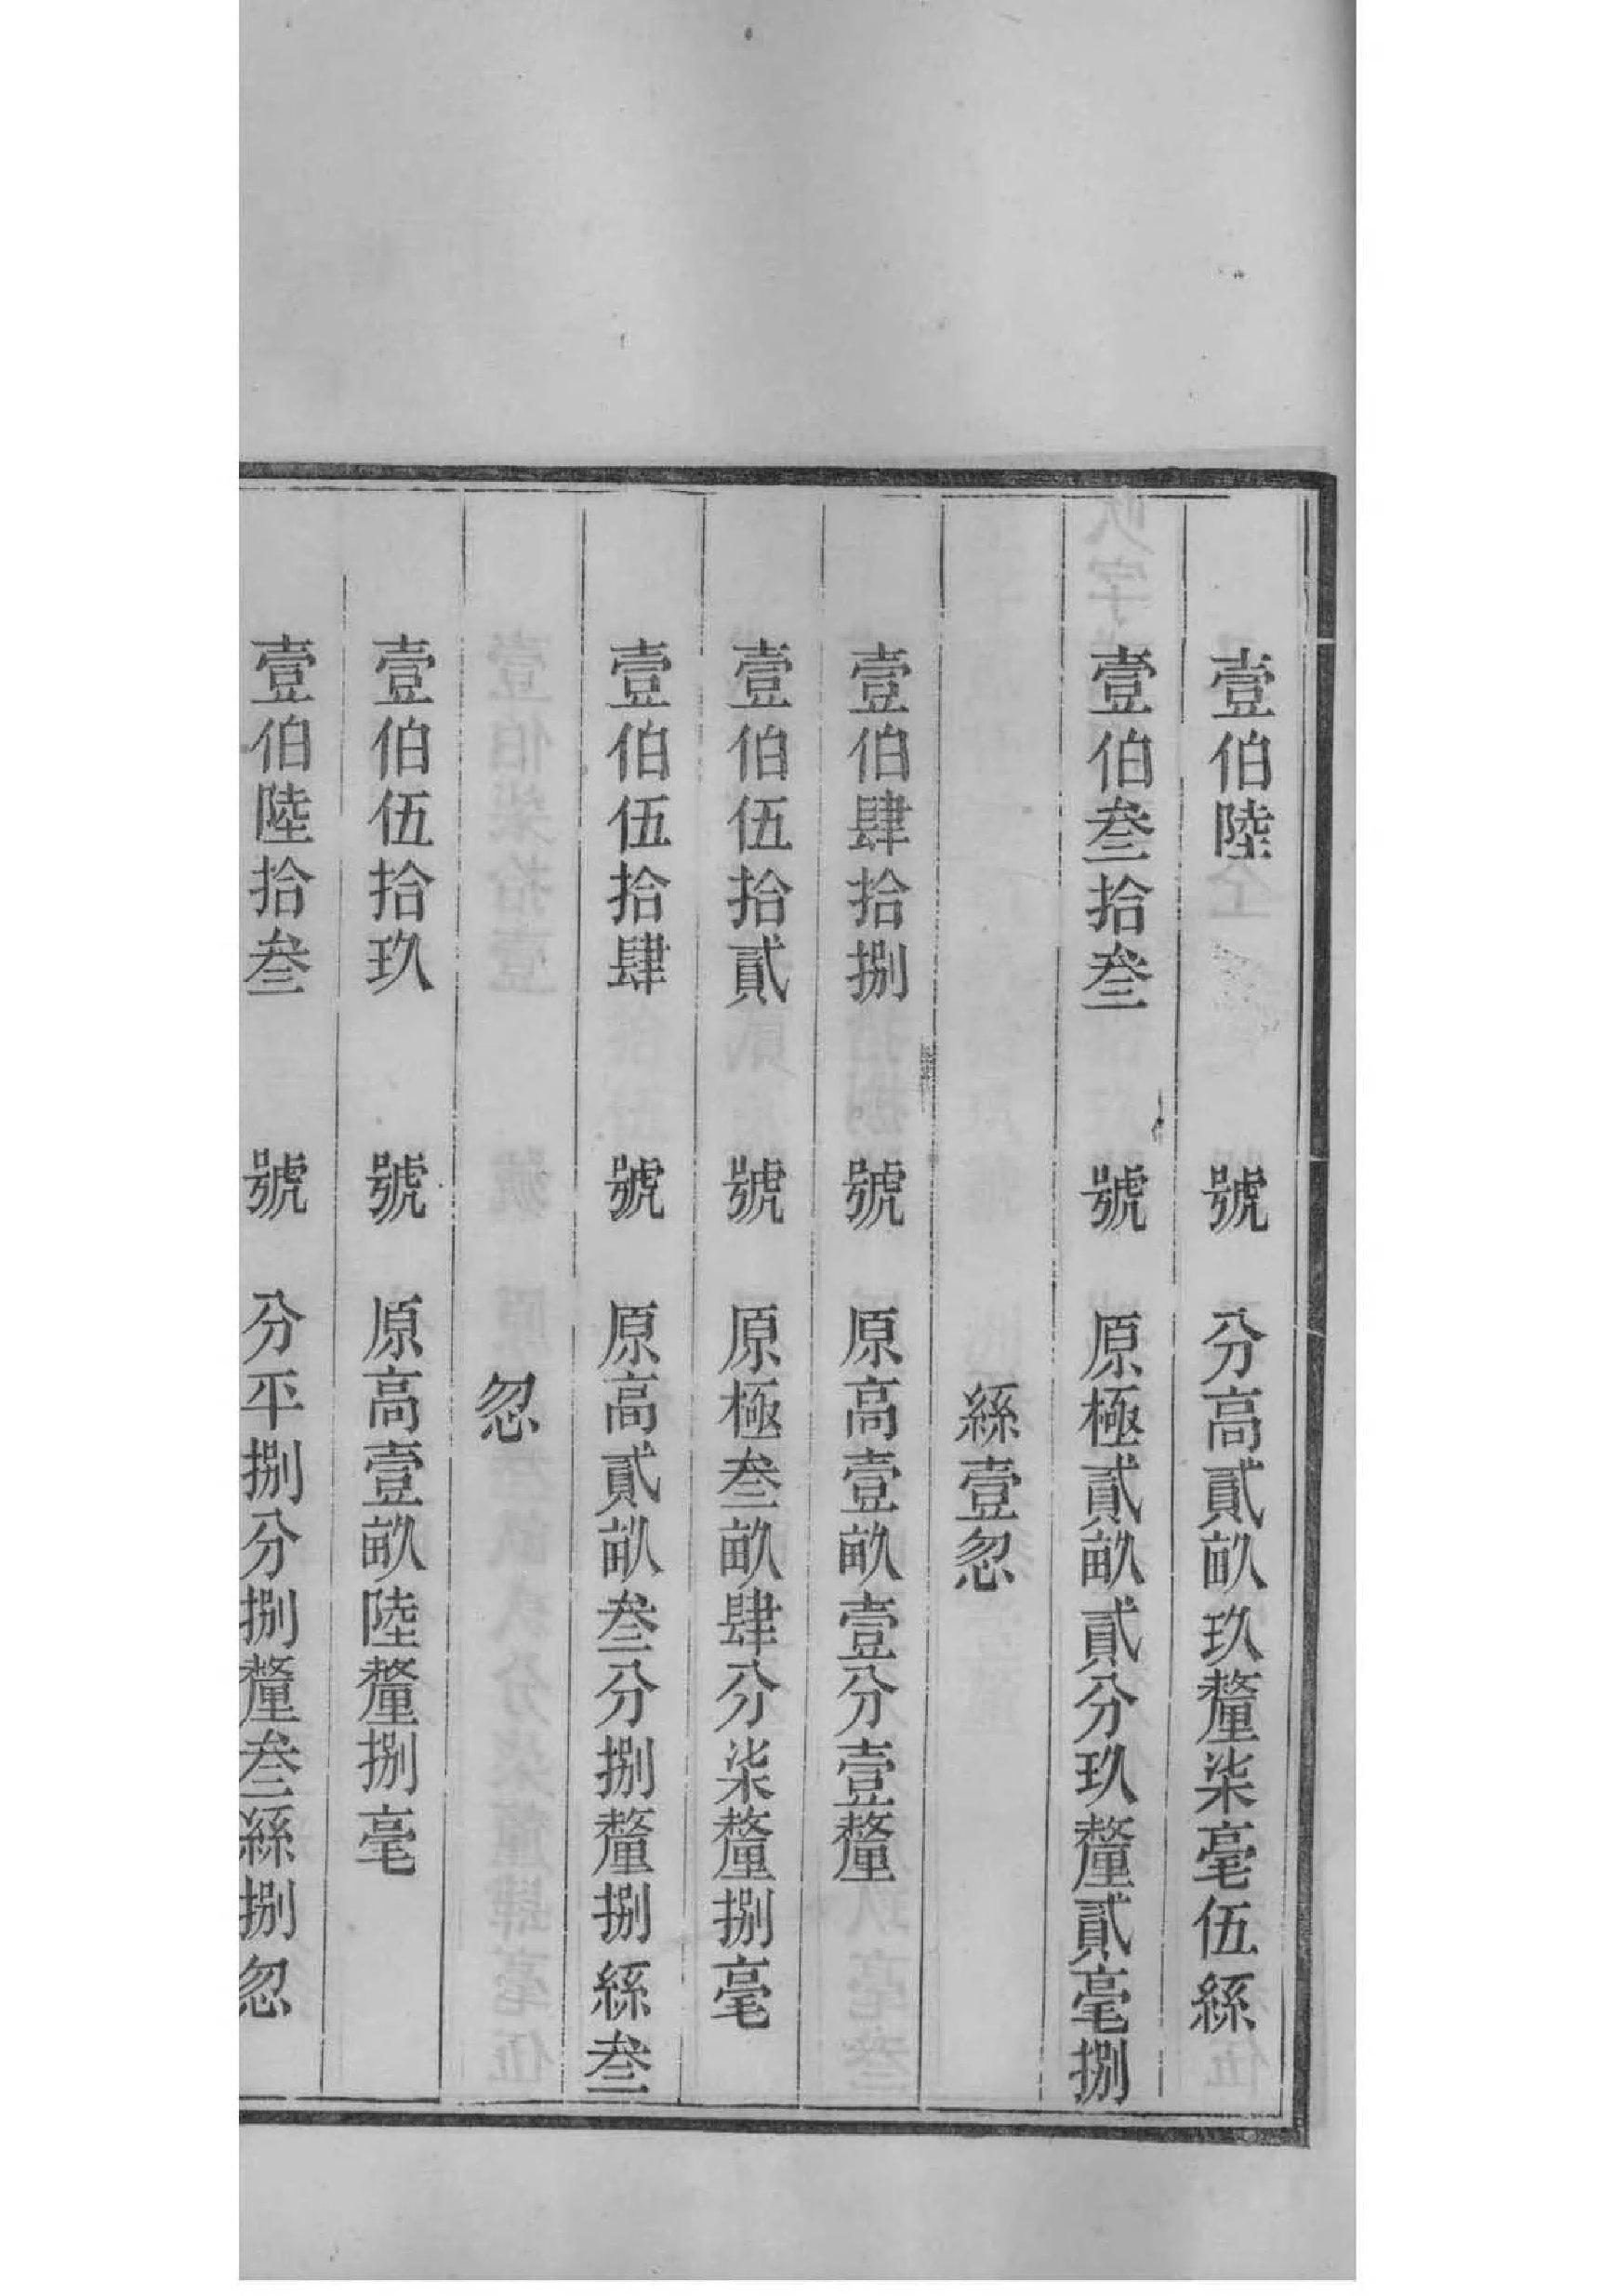 壹伯陸 號 分高貳畝玖釐柒毫伍絲
壹伯叁拾叁 號 原極貳畝貳分玖釐貳毫捌
絲壹忽
壹伯肆拾捌 號 原高壹畝壹分壹釐
壹伯伍拾貳 號 原極叁畝肆分柒釐捌毫
壹伯伍拾肆 號 原高貳畝叁分捌釐捌絲叁
忽
壹伯伍拾玖 號 原高壹畝陸釐捌毫
壹伯陸拾叁 號 分平捌分捌釐叁絲捌忽